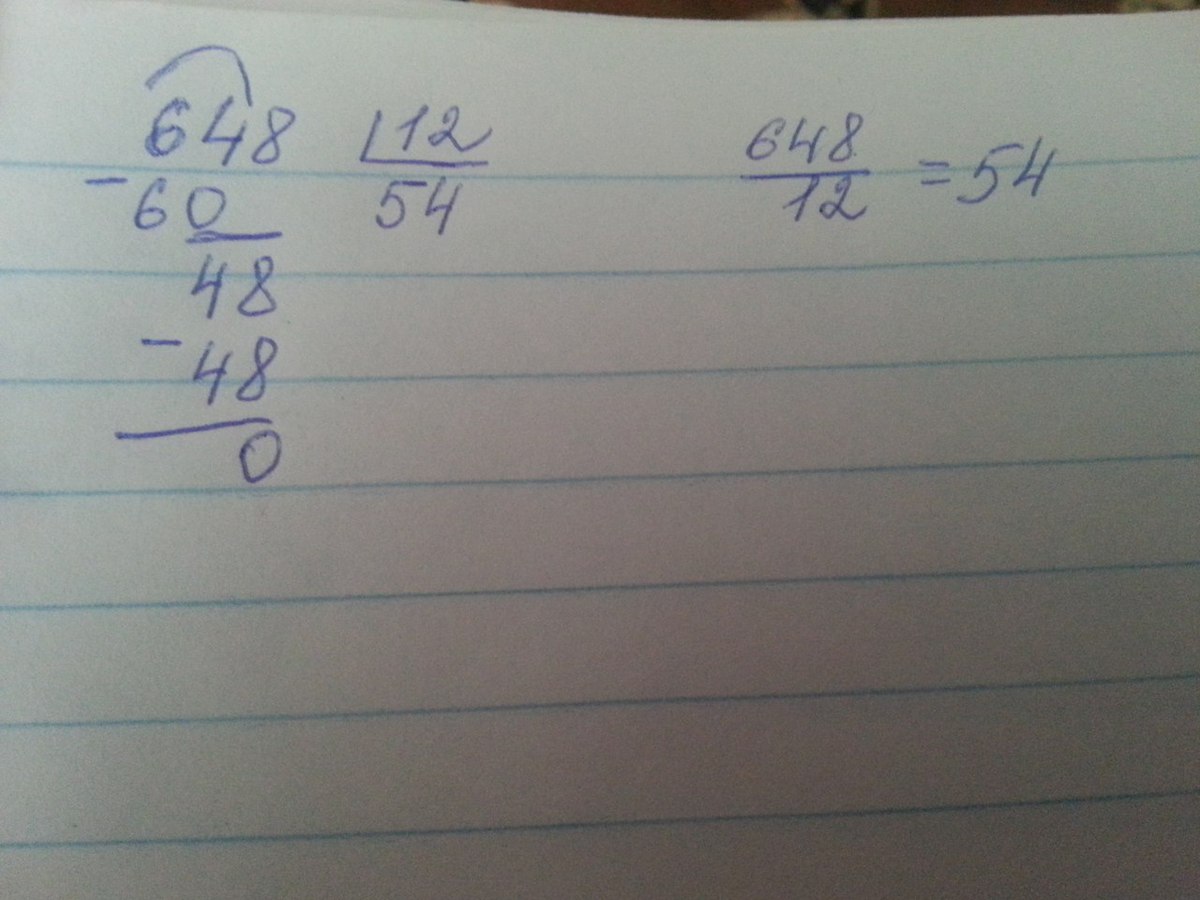 648 12
- 60 54
48
- 48
0
648
12
= 54